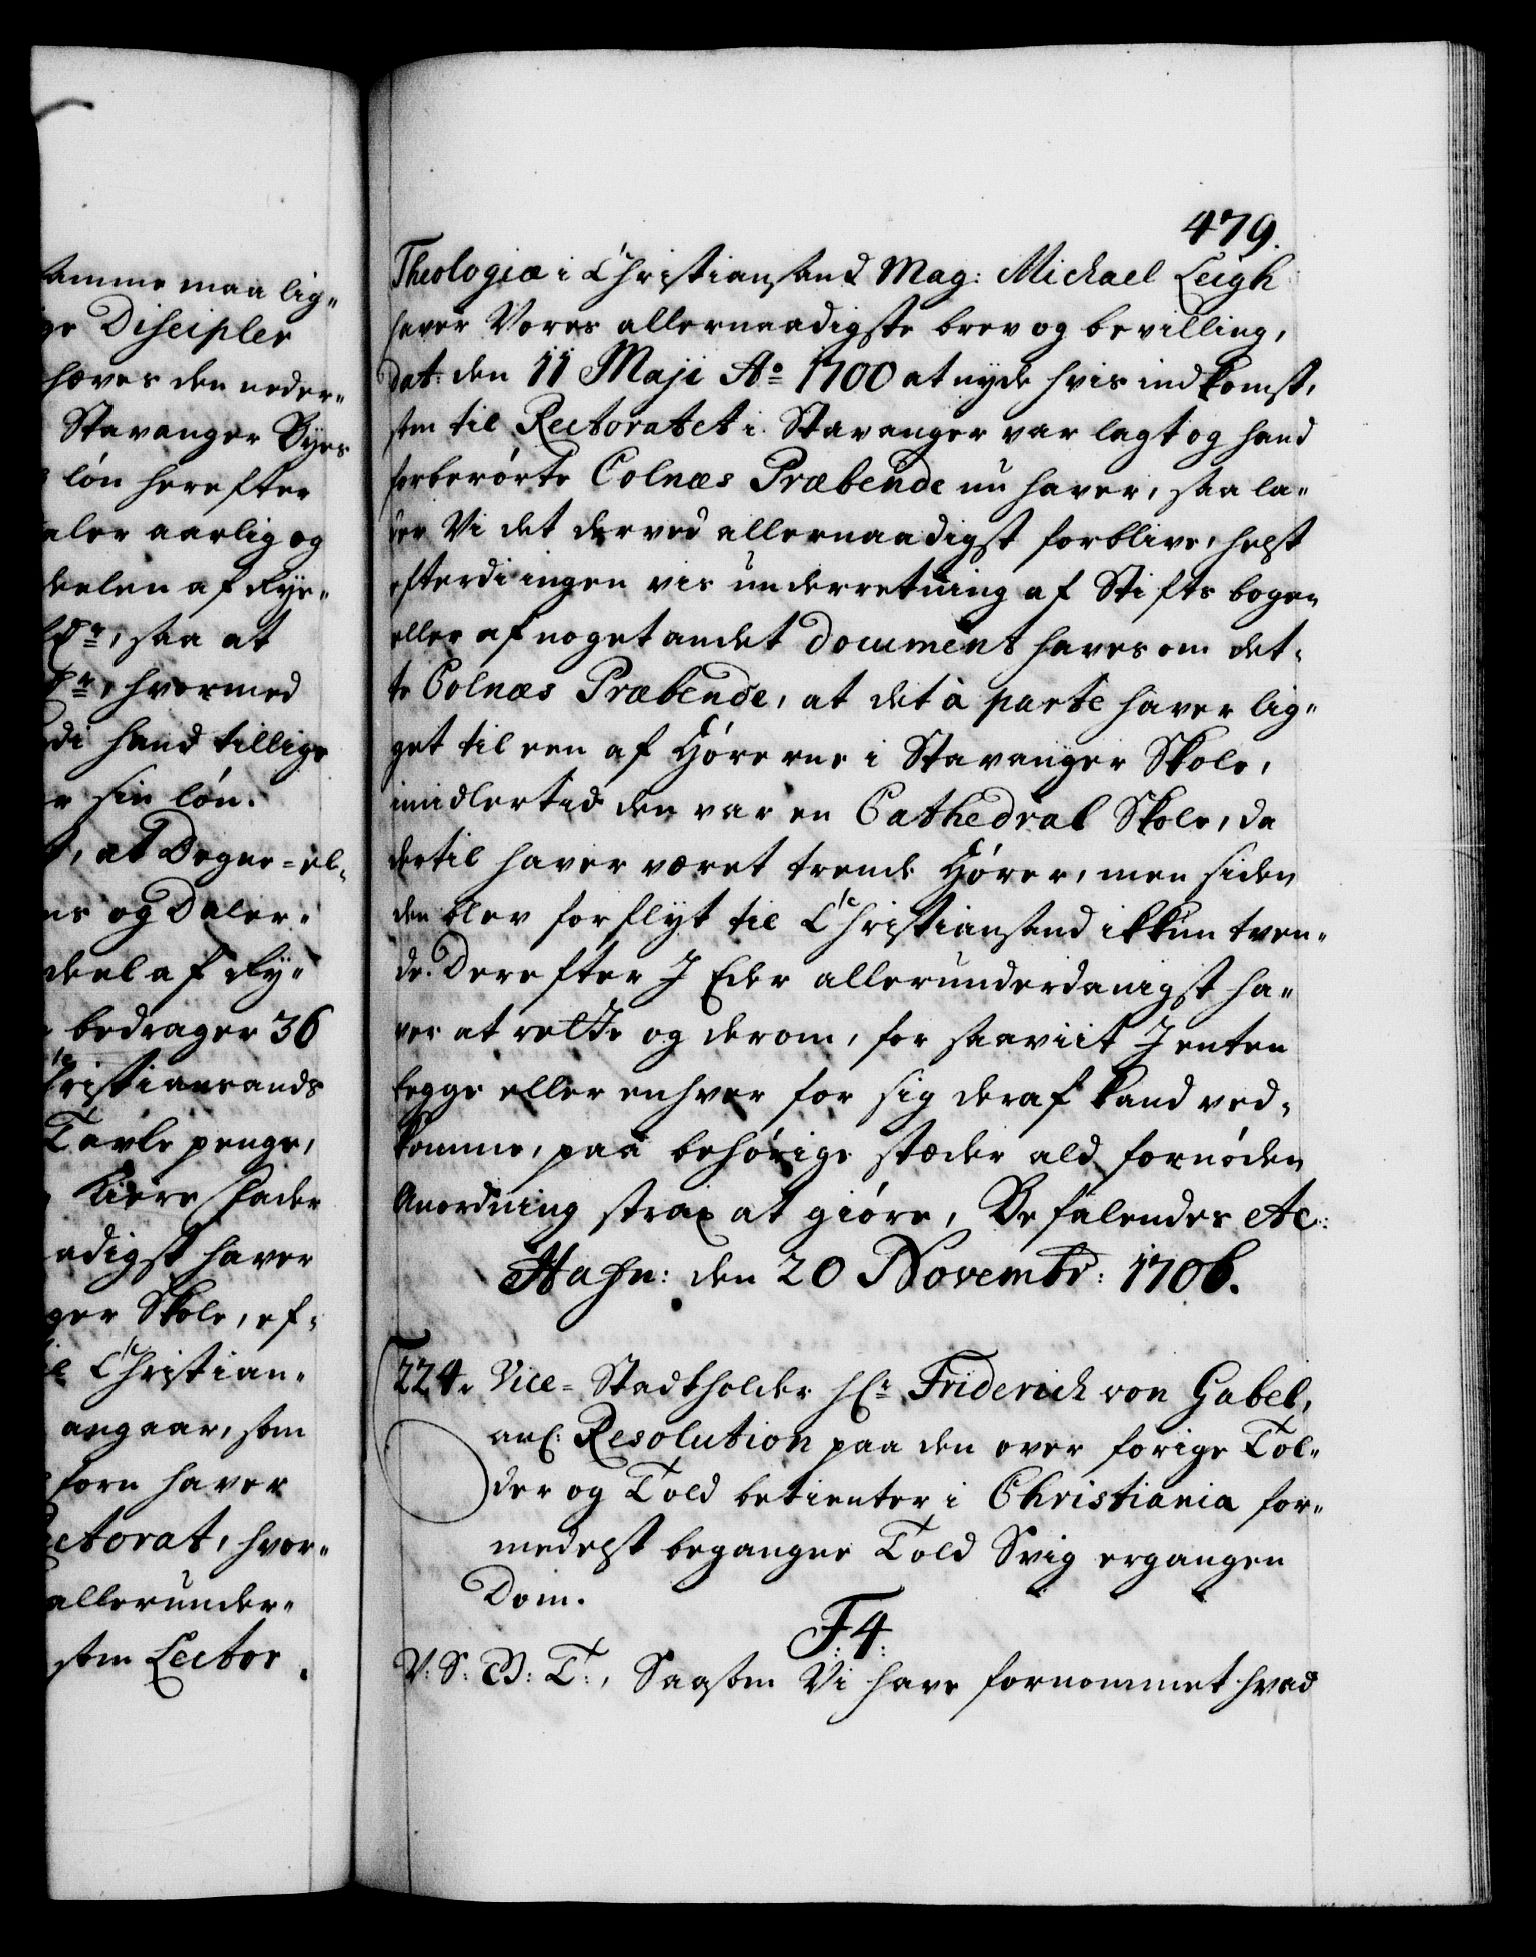 amme maa lig-
ge Discipler
hæves den neder-
Stavanger Byes
løn herefter
aler aarlig og
deelen af Rye-
saa at
hvormed
di hand tillige
r sin løn.
at Degne-el-
ns og Daler-
deel af Ry-
bedrager 36
hristiansands
Tavle penge,
Kiere fader
adigst haver
ger Skole, ef-
l Christian-
angaar, som
forn haver
ectorat, hvor-
allerunder-
som Lector
479.
Theologiæ i Christiansand Mag: Michael Leigh
haver Vores allernaadigste brev og bevilling,
dat: den 11 Maji Ao 1700 at nyde hvis indkomst,
som til Rectoratet i Stavanger var lagt og hand
forberørte Colnæs Præbende nu haver, saa la-
der Vi det derved allernaadigst forblive, helst
efterdi ingen vis underretning af Stifts bogen
eller af noget andet document haves om det-
te Colnæs Præbende, at det à parte haver lig-
get til een af Hørerne i Stavanger Skole,
imidlertid den var en Cathedral Skole, da
dertil haver været trende Hører, men siden
den blev forflyt til Christiansand ikkun tven-
de. Derefter I Eder allerunderdanigst ha-
ver at rette og derom, for saaviit I enten
begge eller enhver for sig deraf kand ved-
komme, paa behørige stæder ald fornøden
Anordning strax at giøre, Befalendes etc:
Hafn: den 20 Novembr: 1706.
224. Vice-Stadtholder Hr: Friderich von Gabel,
anl: Resolution paa den over forige Tol-
der og Told betienter i Christiania for-
medelst begangne Told Svig ergangen
Dom.
F. 4.
V: S: G: T:, Saasom Vi have fornommet hvad